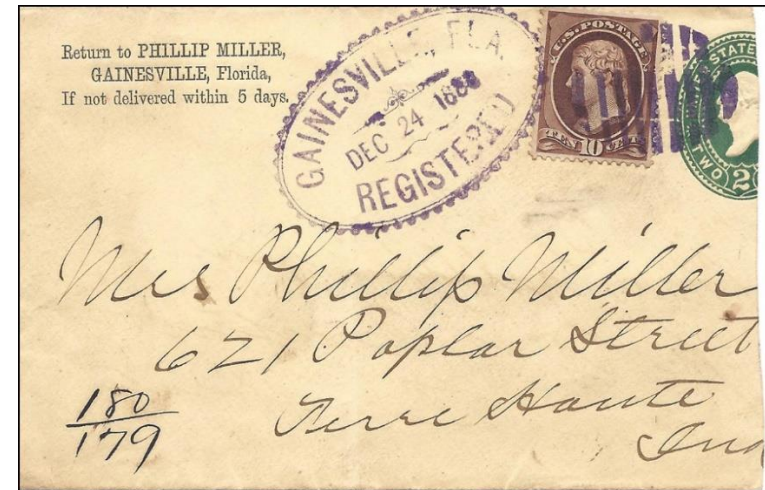 Return to PHILLIP MILLER,
GAINESVILLE, Florida,
If not delivered within 5 days.
GAINESVILLE, FLA.
DEC 24 1888
REGISTERED
U.S. POSTAGE
TEN 10 CENTS
STATE
TWO 2
Mrs Phillip Miller
621 Poplar Street
Terre Haute
Ind
180
179